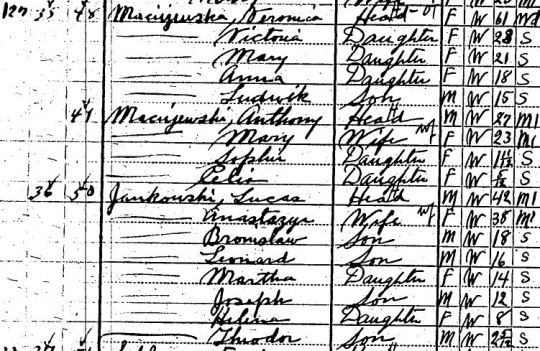 127 35 48 Maciejewska, Veronica Head F W 61 Wd
Victoria Daughter F W 28 S
Mary Daughter F W 21 S
Anna Daughter F W 18 S
Ludwik Son M W 15 S
Maciejewski, Anthony Head M W 27 M1
Mary Wife F W 23 M1
Sophie Daughter F W S
Celia Daughter F W S
36 50 Jankowski, Lucas Head M W 42 M1
Anastazya Wife F W 38 M1
Bronislaw Son M W 18 S
Leonard Son M W 16 S
Martha Daughter F W 14 S
Joseph Son M W 12 S
Helena Daughter F W 8 S
Theodor Son M W S